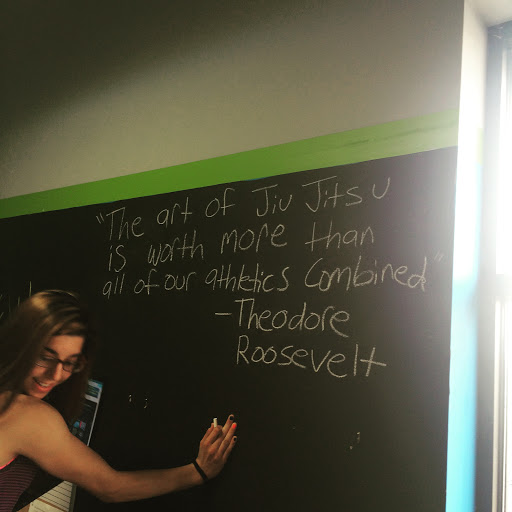 "The art of Jiu Jitsu
is worth more than
all of our athletics Combined"
-Theodore
Roosevelt